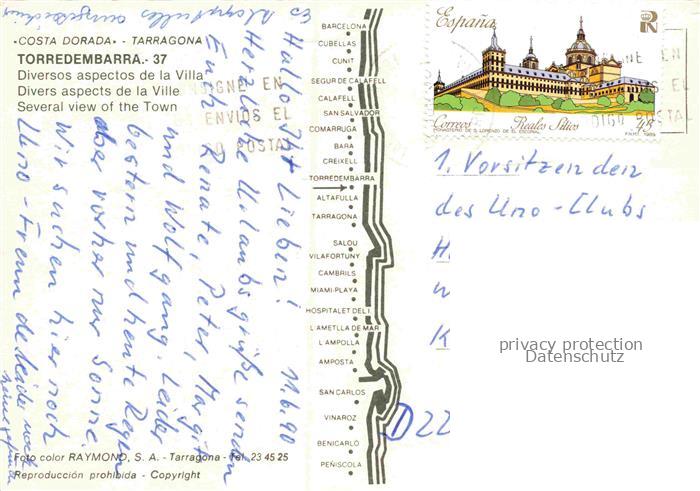 «COSTA DORADA» - TARRAGONA
TORREDEMBARRA.- 37
Diversos aspectos de la Villa
Divers aspects de la Ville
Several view of the Town
Hallo Ihr Lieben! 11.6.90
Herzliche Urlaubsgrüße senden
Euch Renate, Peter, Margit
und Wolfgang. Leider
gestern und heute Regen
aber vorher nur Sonne.
Wir suchen hier noch
Uno-Freunde leider noch
keine gefunden
Es
Foto color RAYMOND, S. A. - Tarragona - Tel. 23 45 25
Reproducción prohibida - Copyright
BARCELONA
CUBELLAS
CUNIT
SEGUR DE CALAFELL
CALAFELL
SAN SALVADOR
COMARRUGA
BARA
CREIXELL
TORREDEMBARRA
ALTAFULLA
TARRAGONA
SALOU
VILAFORTUNY
CAMBRILS
MIAMI-PLAYA
HOSPITALET DEL I.
L'AMETLLA DE MAR
L AMPOLLA
AMPOSTA
SAN CARLOS
VINAROZ
BENICARLO
PEÑISCOLA
España
Correos Reales Sitios 45
MONASTERIO DE S. LORENZO DE EL ESCORIAL F.N.M.T. 1989
IGNE EN
ENVIOS EL
GO POSTAL
1. Vorsitzenden
des Uno-Clubs
H
W
K
D 22
privacy protection
Datenschutz